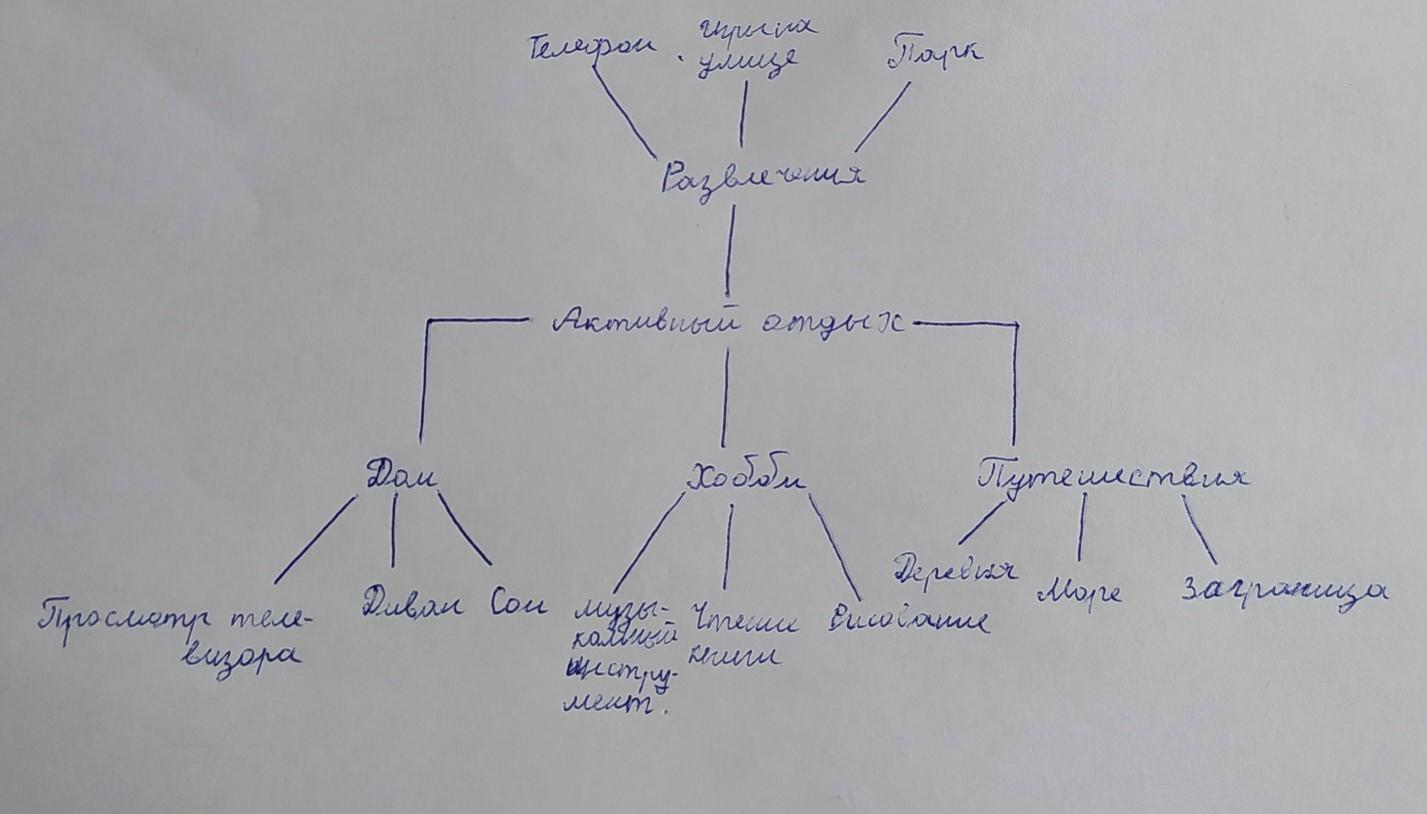 Телефон
игры на
улице
Парк
Развлечения
Активный отдых
Дом
Хобби
Путешествия
Просмотр теле-
визора
Диван
Сон
музы-
кальный
инстру-
мент.
Чтение
книги
Рисование
Деревня
Море
Заграница